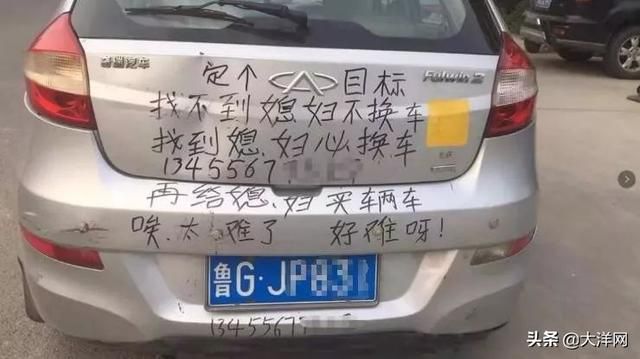 奇瑞汽车
Fulwin 2
定个目标
找不到媳妇不换车
找到媳.妇必换车
13455567
再给媳.妇买车两车
唉.太难了 好难呀!
鲁G·JP83
13455567
头条 @大洋网